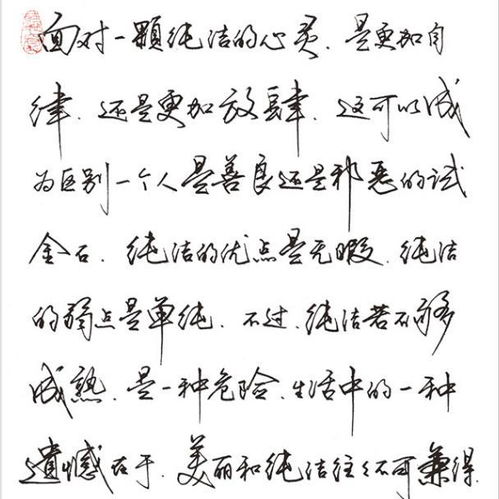 面对一颗纯洁的心灵，是更加自
律，还是更加放肆，这可以成
为区别一个人是善良还是邪恶的试
金石。纯洁的优点是无暇，纯洁
的弱点是单纯。不过，纯洁若不够
成熟，是一种危险。生活中的一种
遗憾在于，美丽和纯洁往往不可兼得。